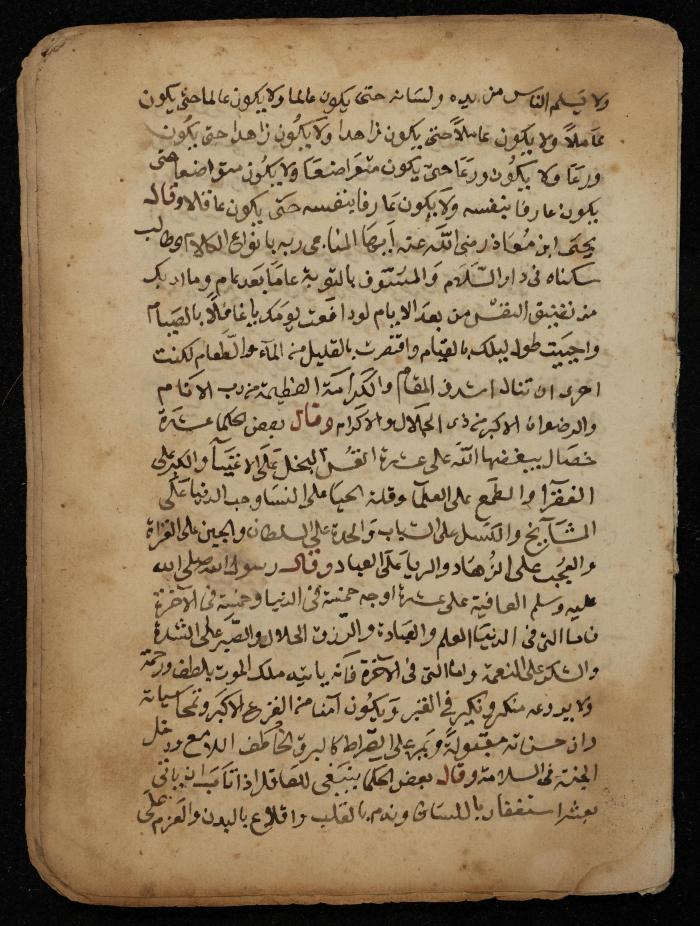 ولا يسلم الناس من يده ولسانه حتى يكون عالما ولا يكون عالما حتى يكون
عاملاً ولا يكون عاملاً حتى يكون زاهدا ولا يكون زاهدا حتى يكون
ورعا ولا يكون ورعا حتى يكون متواضعا ولا يكون متواضعا حتى
يكون عارفا بنفسه ولا يكون عارفا بنفسه حتى يكون عاقلا وقال
يحيى ابن معاذ رضى الله عنه أيها المناجى ربه بانواع الكلام وطالب
سكناه فى دار السلام والمسوف بالتوبة عاما بعد عام وما اريك
من الايام لو دافعت يومك يا غافلا بالصيام
واحييت طول ليلك بالقيام واقتصرت بالقليل من الماء والطعام لكنت
احرى ان تنال اشرف المقام والكرامة العظيمة من رب الانام
والرضوان الاكبر من ذى الجلال والاكرام وقال بعض الحكما عشرة
خصال يبغضها الله على عشرة البخل على الاغنيا والكبر على
الفقرا والطمع على العلما وقلة الحيا على النسا وحب الدنيا على
المشايخ والكسل على الشباب والحدة على السلطان والجبن على الغزاة
والعجب على الزهاد والريا على العباد وقال رسول الله صلى الله
عليه وسلم العافية على عشرة اوجه خمسة فى الدنيا وخمسة فى الآخرة
فاما التى فى الدنيا العلم والعبادة والرزق الحلال والصبر على الشدة
والشكر على النعمة واما التى فى الآخرة فانه يأتيه ملك الموت بلطف ورحمة
ولا يروعه منكر ونكير فى القبر ويكون آمنا من الفزع الاكبر وتمحا سياته
وان حسناته مقبولة ويمر على الصراط كالبرق الخاطف اللامع ودخل
الجنة فى السلامة وقال بعض الحكما ينبغى للعاقل اذا تاب ان ياتى
بعشر استغفار باللسان وندم بالقلب واقلاع بالبدن والعزم على